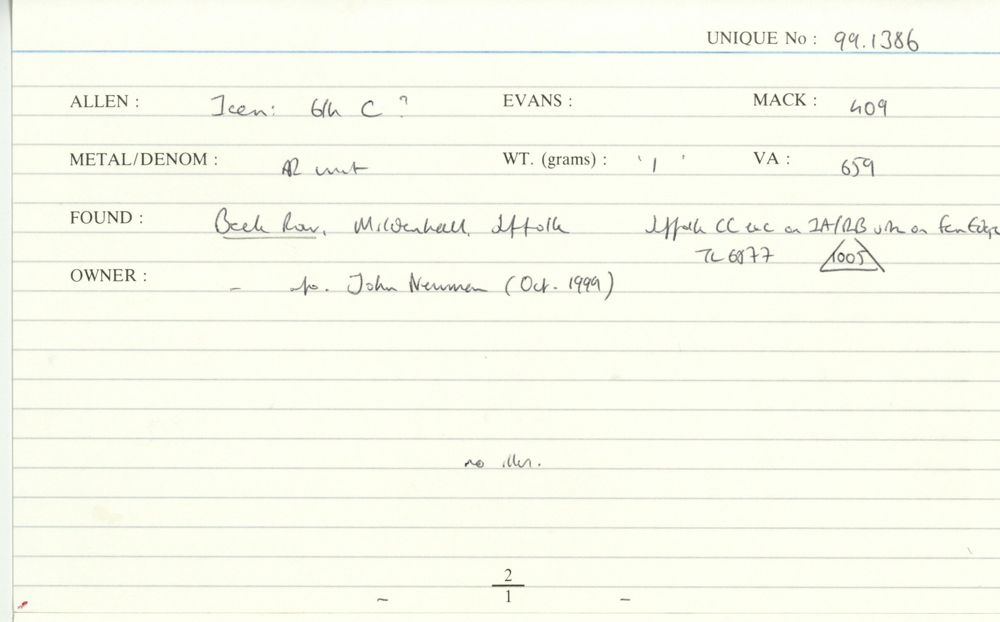 UNIQUE No : 99.1386
ALLEN : Icen: 6th C ? EVANS : MACK : 409
METAL/DENOM : AR unit WT. (grams) : '1' VA : 659
FOUND : Beck Row, Mildenhall, Suffolk Suffolk CC exc on IA/RB site on Fen Edge
TL 6877 1005
OWNER : – John Newman (Oct. 1999)
no illus.
2
1
– –